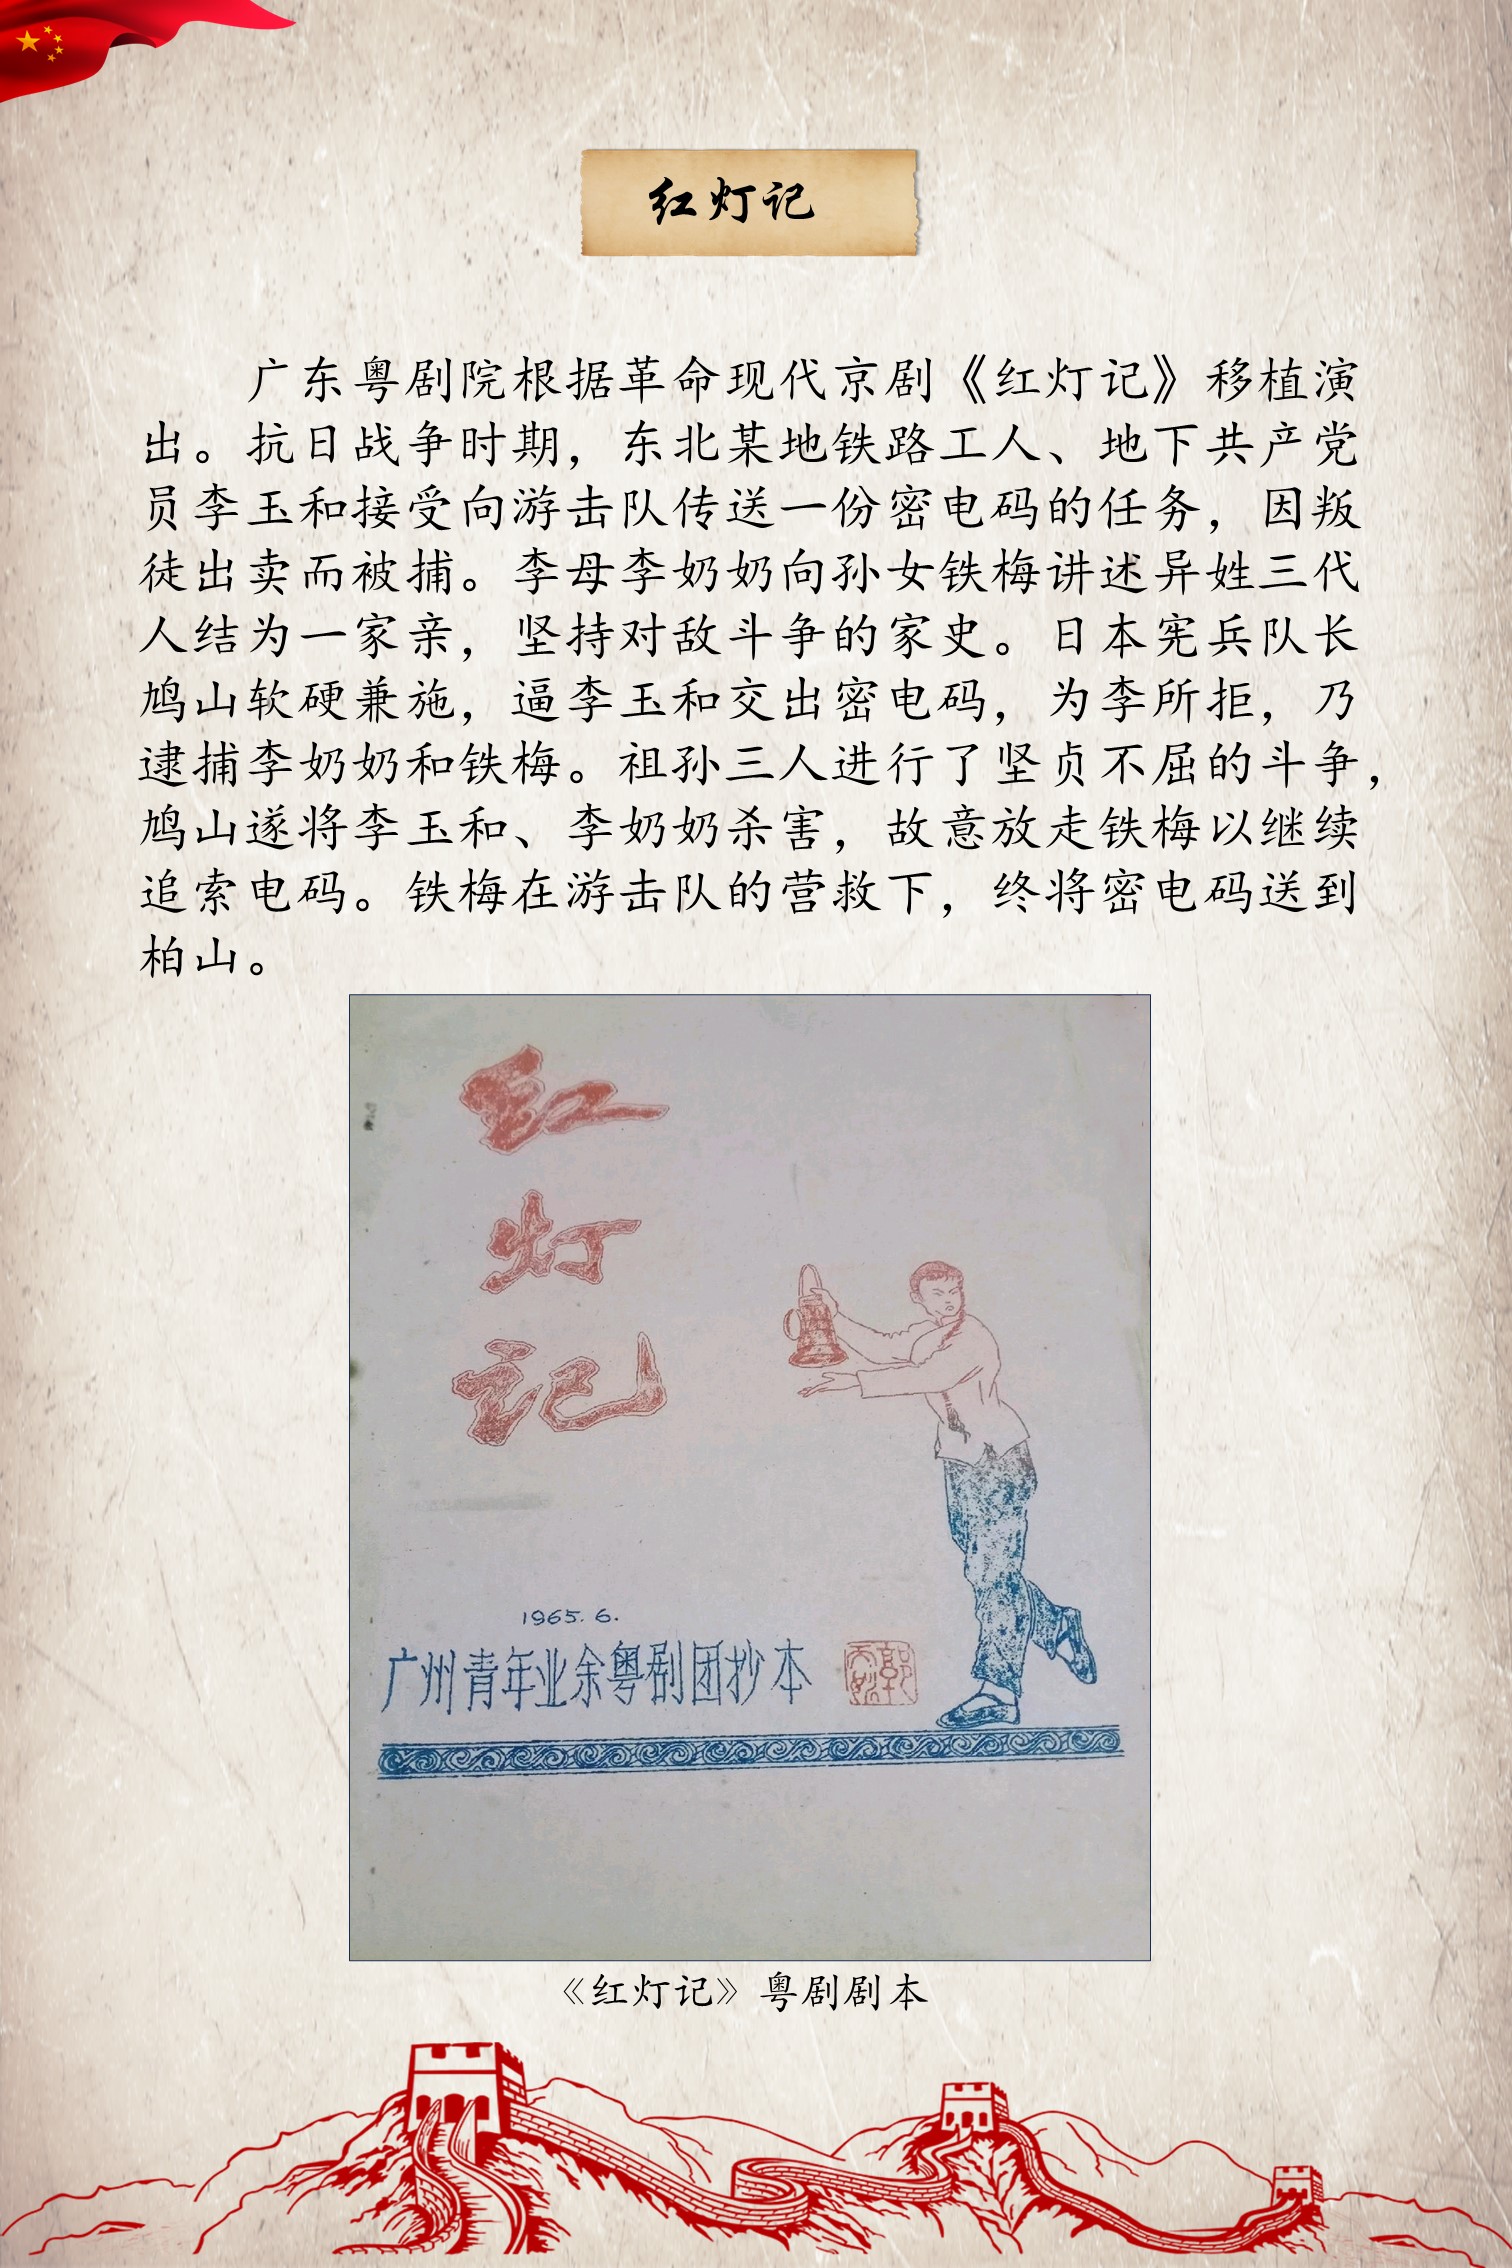 红灯记
广东粤剧院根据革命现代京剧《红灯记》移植演
出。抗日战争时期，东北某地铁路工人、地下共产党
员李玉和接受向游击队传送一份密电码的任务，因叛
徒出卖而被捕。李母李奶奶向孙女铁梅讲述异姓三代
人结为一家亲，坚持对敌斗争的家史。日本宪兵队长
鸠山软硬兼施，逼李玉和交出密电码，为李所拒，乃
逮捕李奶奶和铁梅。祖孙三人进行了坚贞不屈的斗争，
鸠山遂将李玉和、李奶奶杀害，故意放走铁梅以继续
追索电码。铁梅在游击队的营救下，终将密电码送到
柏山。
红
灯
记
1965.6.
广州青年业余粤剧团抄本
《红灯记》粤剧剧本